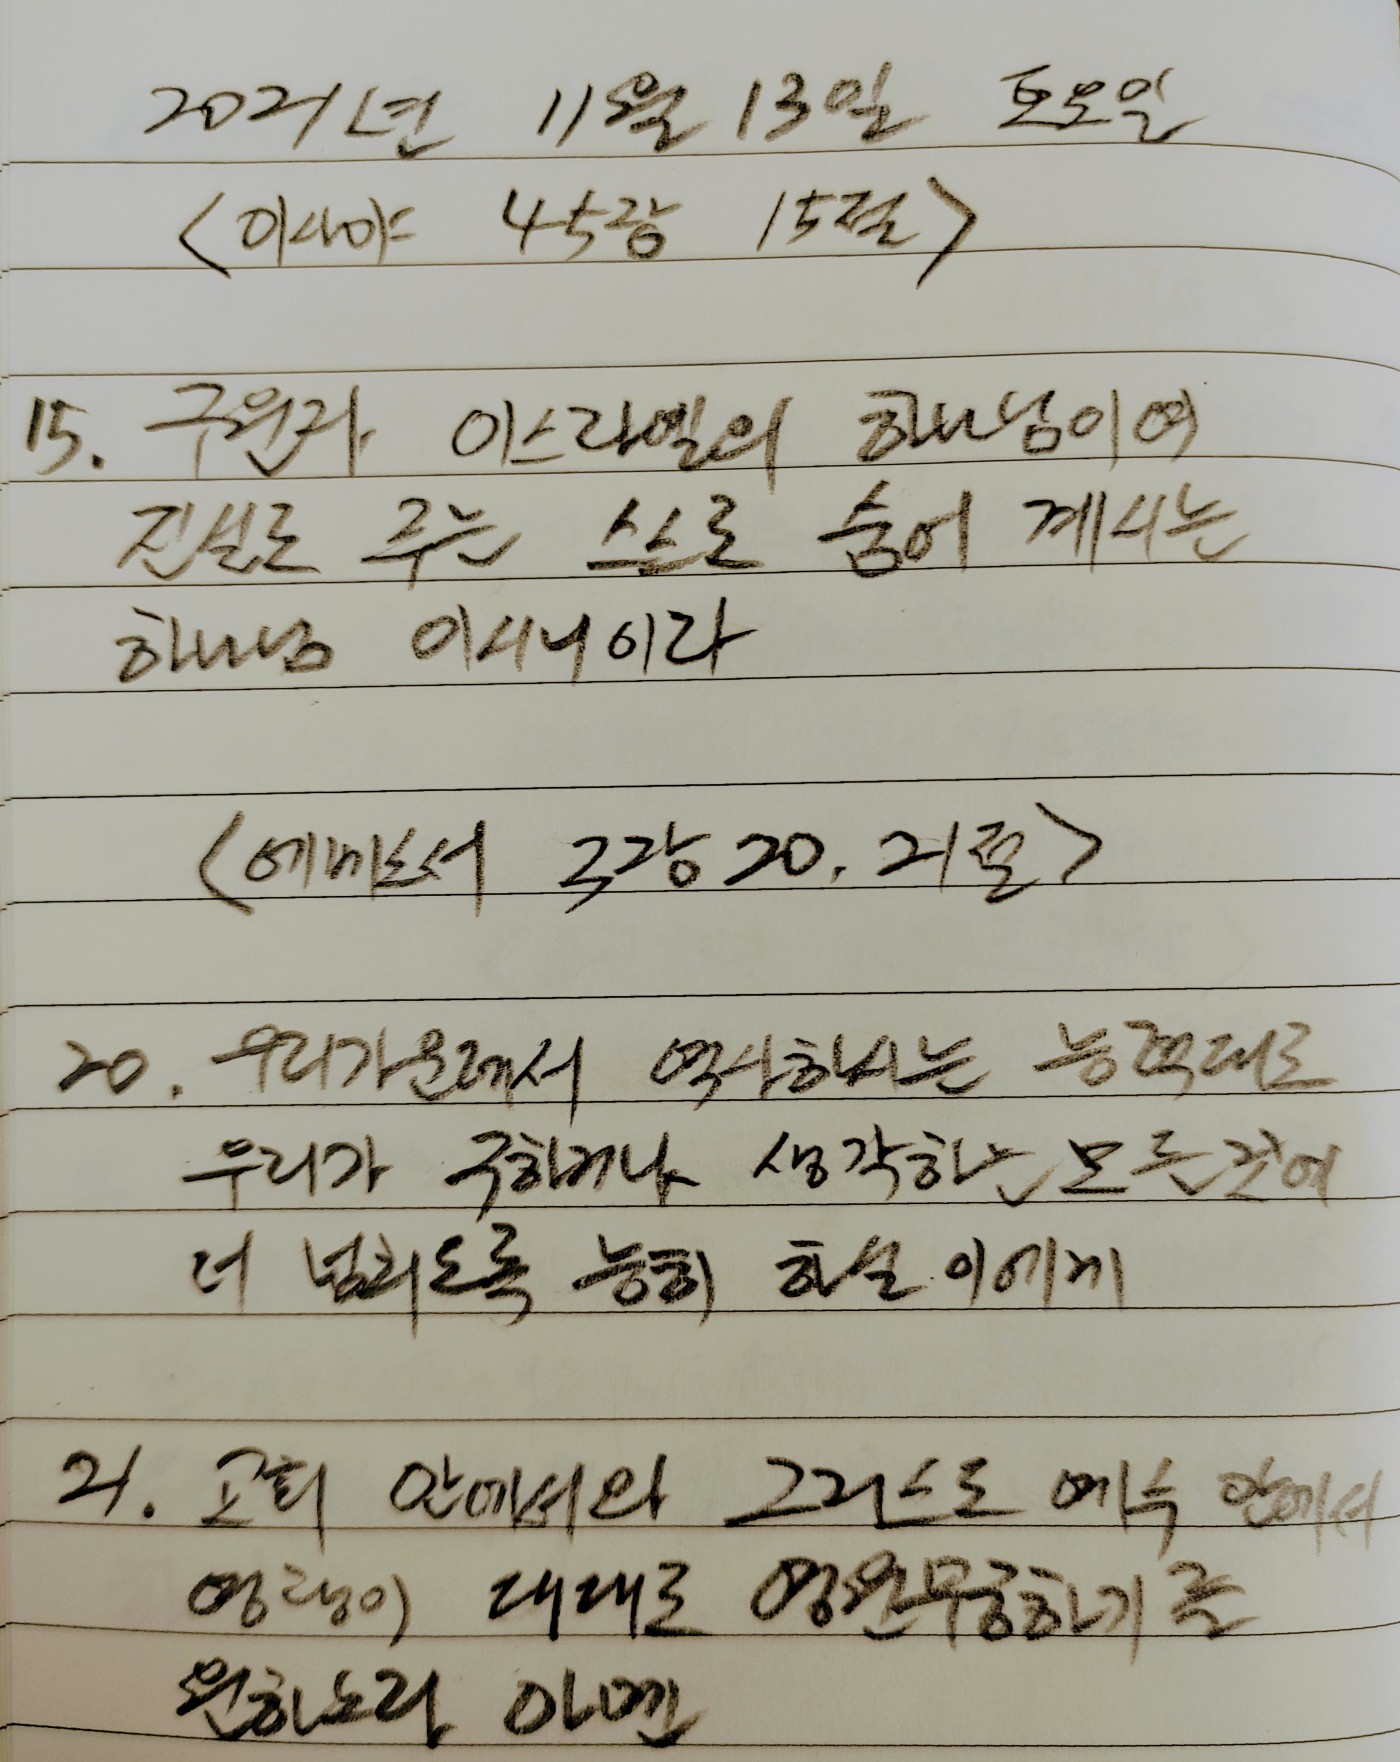 2021년 11월 13일 토요일
<이사야 45장 15절>
15. 구원자 이스라엘의 하나님이여
진실로 주는 스스로 숨어 계시는
하나님 이시니이라
<에베소서 3장 20. 21절>
20. 우리가운데서 역사하시는 능력대로
우리가 구하거나 생각하는 모든것에
더 넘치도록 능히 하실 이에게
21. 교회 안에서와 그리스도 예수 안에서
영광이 대대로 영원무궁하기를
원하노라 아멘